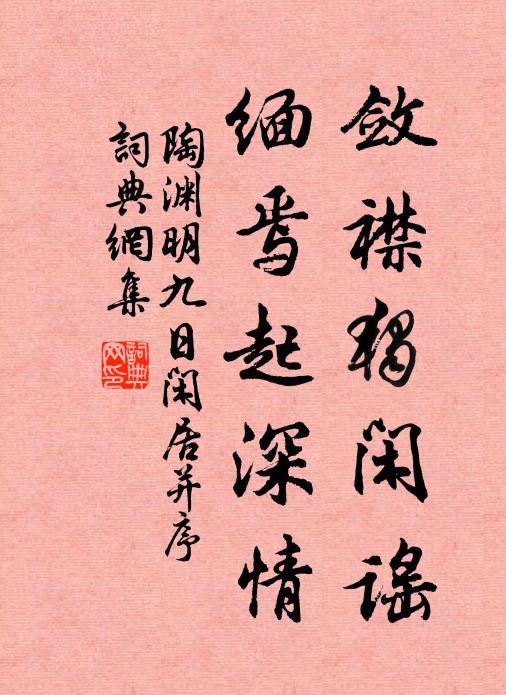 斂襟獨閑謠
緬焉起深情
陶渊明九日閑居并序
詞典網集
詞典網印